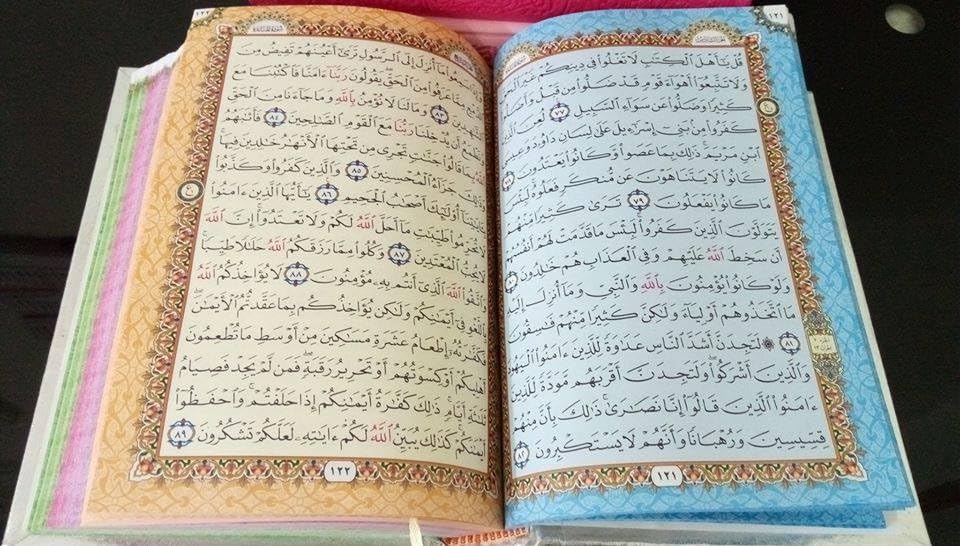 ١٢١
قُلْ يَٰٓأَهْلَ ٱلْكِتَٰبِ لَا تَغْلُوا۟ فِى دِينِكُمْ غَيْرَ
وَلَا تَتَّبِعُوٓا۟ أَهْوَآءَ قَوْمٍ قَدْ ضَلُّوا۟ مِن قَبْلُ
كَثِيرًا وَضَلُّوا۟ عَن سَوَآءِ ٱلسَّبِيلِ ٧٧ لُعِنَ
كَفَرُوا۟ مِنۢ بَنِىٓ إِسْرَٰٓءِيلَ عَلَىٰ لِسَانِ دَاوُۥدَ
ٱبْنِ مَرْيَمَ ۚ ذَٰلِكَ بِمَا عَصَوا۟ وَّكَانُوا۟ يَعْتَدُونَ
كَانُوا۟ لَا يَتَنَاهَوْنَ عَن مُّنكَرٍ فَعَلُوهُ ۚ
مَا كَانُوا۟ يَفْعَلُونَ ٧٩ تَرَىٰ كَثِيرًا مِّنْهُمْ
يَتَوَلَّوْنَ ٱلَّذِينَ كَفَرُوا۟ ۚ لَبِئْسَ مَا قَدَّمَتْ لَهُمْ أَنفُسُهُمْ
أَن سَخِطَ ٱللَّهُ عَلَيْهِمْ وَفِى ٱلْعَذَابِ هُمْ خَٰلِدُونَ
وَلَوْ كَانُوا۟ يُؤْمِنُونَ بِٱللَّهِ وَٱلنَّبِىِّ وَمَآ أُنزِلَ
مَا ٱتَّخَذُوهُمْ أَوْلِيَآءَ وَلَٰكِنَّ كَثِيرًا مِّنْهُمْ فَٰسِقُونَ
٨١ ۞ لَتَجِدَنَّ أَشَدَّ ٱلنَّاسِ عَدَٰوَةً لِّلَّذِينَ ءَامَنُوا۟
وَٱلَّذِينَ أَشْرَكُوا۟ ۖ وَلَتَجِدَنَّ أَقْرَبَهُم مَّوَدَّةً لِّلَّذِينَ
ءَامَنُوا۟ ٱلَّذِينَ قَالُوٓا۟ إِنَّا نَصَٰرَىٰ ۚ ذَٰلِكَ بِأَنَّ مِنْهُمْ
قِسِّيسِينَ وَرُهْبَانًا وَأَنَّهُمْ لَا يَسْتَكْبِرُونَ ٨٢
١٢١
١٢٢
سورة المائدة
مَآ أُنزِلَ إِلَى ٱلرَّسُولِ تَرَىٰٓ أَعْيُنَهُمْ تَفِيضُ مِنَ
مِمَّا عَرَفُوا۟ مِنَ ٱلْحَقِّ ۖ يَقُولُونَ رَبَّنَآ ءَامَنَّا فَٱكْتُبْنَا مَعَ
٨٣ وَمَا لَنَا لَا نُؤْمِنُ بِٱللَّهِ وَمَا جَآءَنَا مِنَ ٱلْحَقِّ
وَنَطْمَعُ أَن يُدْخِلَنَا رَبُّنَا مَعَ ٱلْقَوْمِ ٱلصَّٰلِحِينَ ٨٤ فَأَثَٰبَهُمُ
بِمَا قَالُوا۟ جَنَّٰتٍ تَجْرِى مِن تَحْتِهَا ٱلْأَنْهَٰرُ خَٰلِدِينَ فِيهَا ۚ
جَزَآءُ ٱلْمُحْسِنِينَ ٨٥ وَٱلَّذِينَ كَفَرُوا۟ وَكَذَّبُوا۟
أُو۟لَٰٓئِكَ أَصْحَٰبُ ٱلْجَحِيمِ ٨٦ يَٰٓأَيُّهَا ٱلَّذِينَ ءَامَنُوا۟
لَا تُحَرِّمُوا۟ طَيِّبَٰتِ مَآ أَحَلَّ ٱللَّهُ لَكُمْ وَلَا تَعْتَدُوٓا۟ ۚ إِنَّ ٱللَّهَ
لَا يُحِبُّ ٱلْمُعْتَدِينَ ٨٧ وَكُلُوا۟ مِمَّا رَزَقَكُمُ ٱللَّهُ حَلَٰلًا طَيِّبًا ۚ
وَٱتَّقُوا۟ ٱللَّهَ ٱلَّذِىٓ أَنتُم بِهِۦ مُؤْمِنُونَ ٨٨ لَا يُؤَاخِذُكُمُ ٱللَّهُ
بِٱللَّغْوِ فِىٓ أَيْمَٰنِكُمْ وَلَٰكِن يُؤَاخِذُكُم بِمَا عَقَّدتُّمُ ٱلْأَيْمَٰنَ ۖ
فَكَفَّٰرَتُهُۥٓ إِطْعَامُ عَشَرَةِ مَسَٰكِينَ مِنْ أَوْسَطِ مَا تُطْعِمُونَ
أَهْلِيكُمْ أَوْ كِسْوَتُهُمْ أَوْ تَحْرِيرُ رَقَبَةٍ ۖ فَمَن لَّمْ يَجِدْ فَصِيَامُ
ثَلَٰثَةِ أَيَّامٍ ۚ ذَٰلِكَ كَفَّٰرَةُ أَيْمَٰنِكُمْ إِذَا حَلَفْتُمْ ۚ وَٱحْفَظُوٓا۟
أَيْمَٰنَكُمْ ۚ كَذَٰلِكَ يُبَيِّنُ ٱللَّهُ لَكُمْ ءَايَٰتِهِۦ لَعَلَّكُمْ تَشْكُرُونَ ٨٩
١٢٢